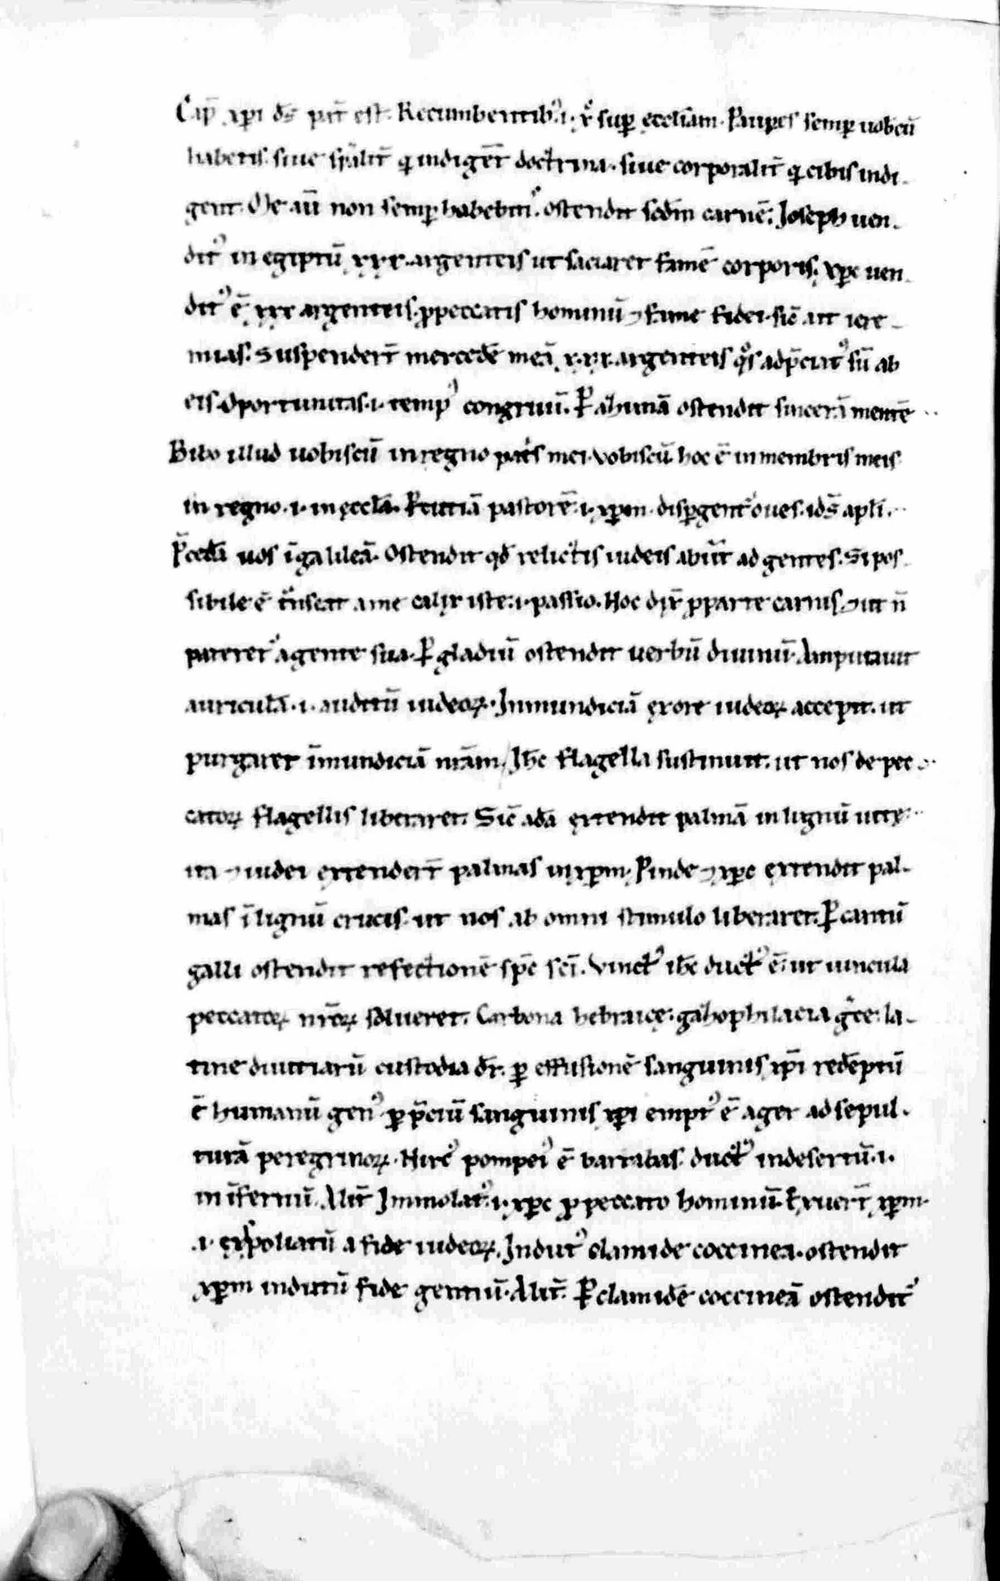 Cap̄ xp̄i ds̄ pat̄ est. Recumbentib᷒ .i. xͥ sup̱ ęcclesiam. Paup̱es semp̱ uobcū
habetis. siue sp̄alit̄ qͥ indigēt doctrina. siue corporalit̄ qͥ cibis indi-
gent. Me aū non semp̱ habebitis. ostendit scdm̄ carnē. Ioseph uen-
dit᷒ in egiptū xxx. argenteis ut saciaret famē corporis. xp̄c uen-
dit᷒ ē xxx argenteis. p̱ peccatis hominū ⁊ fame fidei. sic̄ ait iere-
mias. Suspender̄t mercedē meā xxx. argenteis qͦs adp̄ciat᷒ sū ab
eis. Oportunitas .i. temp᷒ congruū. P̱ ahunā ostendit sincerā mentē
Bibo illud uobiscū in regno pat͛s mei. uobiscū hoc ē in membris meis
in regno .i. in ęcclā. P̱cutiā pastorē .i. xp̄m. disp̱gent᷒ oues. ids̄ apli.
P̄cedā uos ī galileā. Ostendit qd̄ relictis iudeis abiūt ad gentes. Si pos-
sibile ē t̄nseat a me calix iste .i. passio. Hoc dix̄ p̱ parte carnis. ⁊ ut n̄
pateret᷒ a gente sua. P̱ gladiū ostendit uerbū diuinū. Amputauit
auriculā .i. auditū iudeoꝝ. Inmundiciā ex ore iudeoꝝ accepit. ut
purgaret īmundiciā nr̄am. Ihc̄ flagella sustinuit. ut nos de pec-
catoꝝ flagellis liberaret. Sic̄ adā extendit palmā in lignū uite.
ita ⁊ iudei extender̄t palmas in xp̄m. P̱inde ⁊ xp̄c extendit pal-
mas ī lignū crucis. ut nos ab omni stimulo liberaret. P̱ cantū
galli ostendit refectionē sp̄c sc̄i. Vinct᷒ ihc̄ duct᷒ ē. ut uincula
peccatoꝝ nr̄oꝝ solueret. Corbona hebraice. gazophilacia gͬce. la-
tine diuitiarū custodia dr̄. p̱ effusionē sanguinis xp̄i redēptū
ē humanū gen᷒. p̱ p̄ciū sanguinis xp̄i empt᷒ ē ager ad sepul-
turā peregrinoꝝ. Hirc᷒ pompei᷒ ē barrabas. duct᷒ in desertū .i.
in īfernū. Alit̄ Immolat᷒ .i. xp̄c p̱ peccato hominū. Exuer̄t xp̄m.
.i. expoliatū a fide iudeoꝝ. Indut᷒ clamide coccinea. ostendit
xp̄m indutū fide gentiū. Alit̄. P̱ clamidē coccineā ostendit᷒